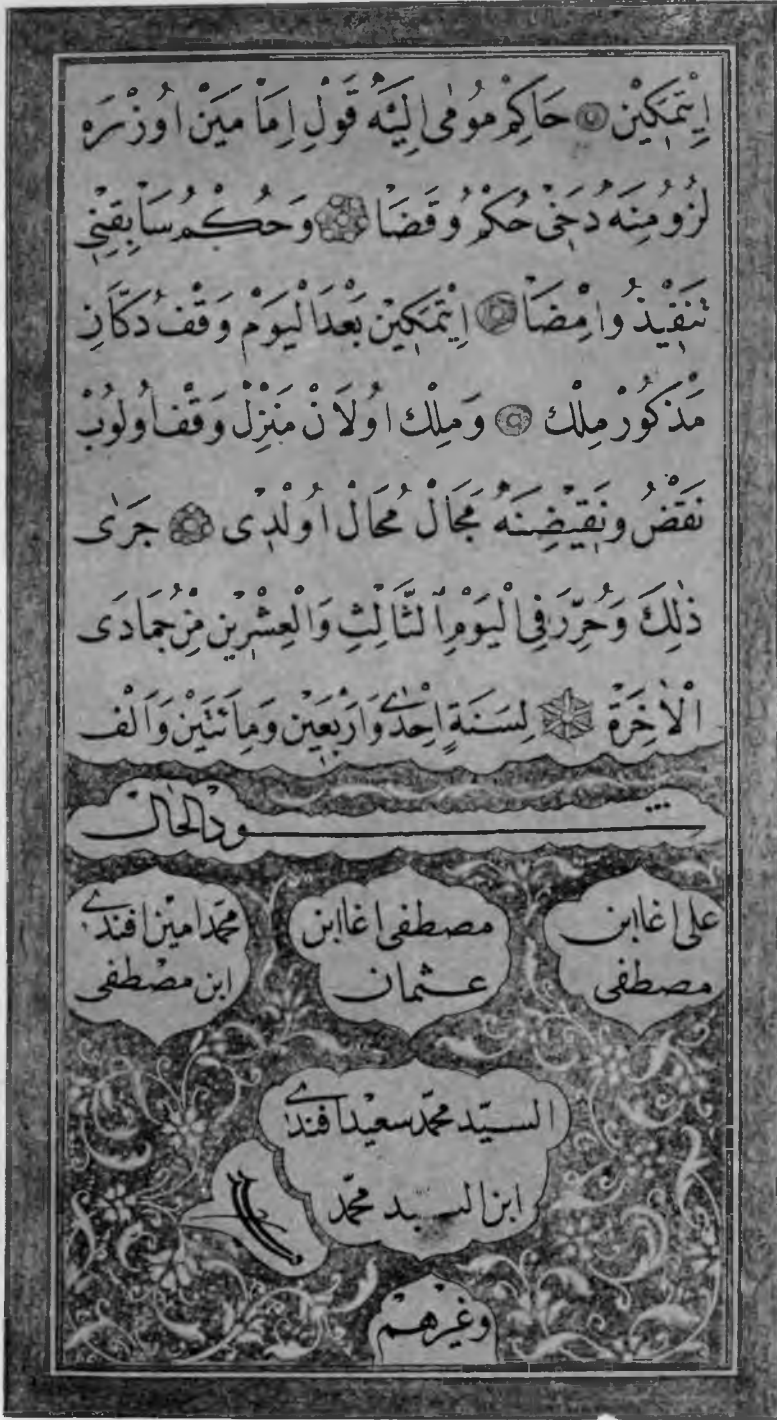 اِيتْمَكِينْ حَاكِمْ مُومٰى اِلَيْهْ قَوْلِ اِمَامَيْنْ اوُزْرَه
لُزُومِنَه دَخِى حُكْمُ وقَضَا وَحُكْمُ سَابِقِنِى
تَنْفِيذُ وامْضَا اِيتْمَكِينْ بَعْدَالْيَوْمْ وَقْفْ دُكَّانِ
مَذْكُورْ مِلْك وَمِلْك اوُلَانْ مَنْزِلْ وَقْف اوُلوُبْ
نَقْضُ ونَقِيضِنَهْ مَجَالْ مُحَالْ اوُلْدِى جَرٰى
ذٰلِكَ وَحُرِّرَ فِى الْيَوْمِ الثَّالِثِ وَالْعِشْرِينِ مِنْ جُمَادَى
الْاٰخِرَةْ لِسَنَةِ اِحْدٰى وَارْبَعِينْ وَمِأَتَيْنْ وَاَلْف
شهودالحال
على اغا ابن مصطفى
مصطفى اغا ابن عثمان
محمد امين افندى ابن مصطفى
السيّد محمّد سعيد افندى
ابن السيد محمّد
وغيرهم